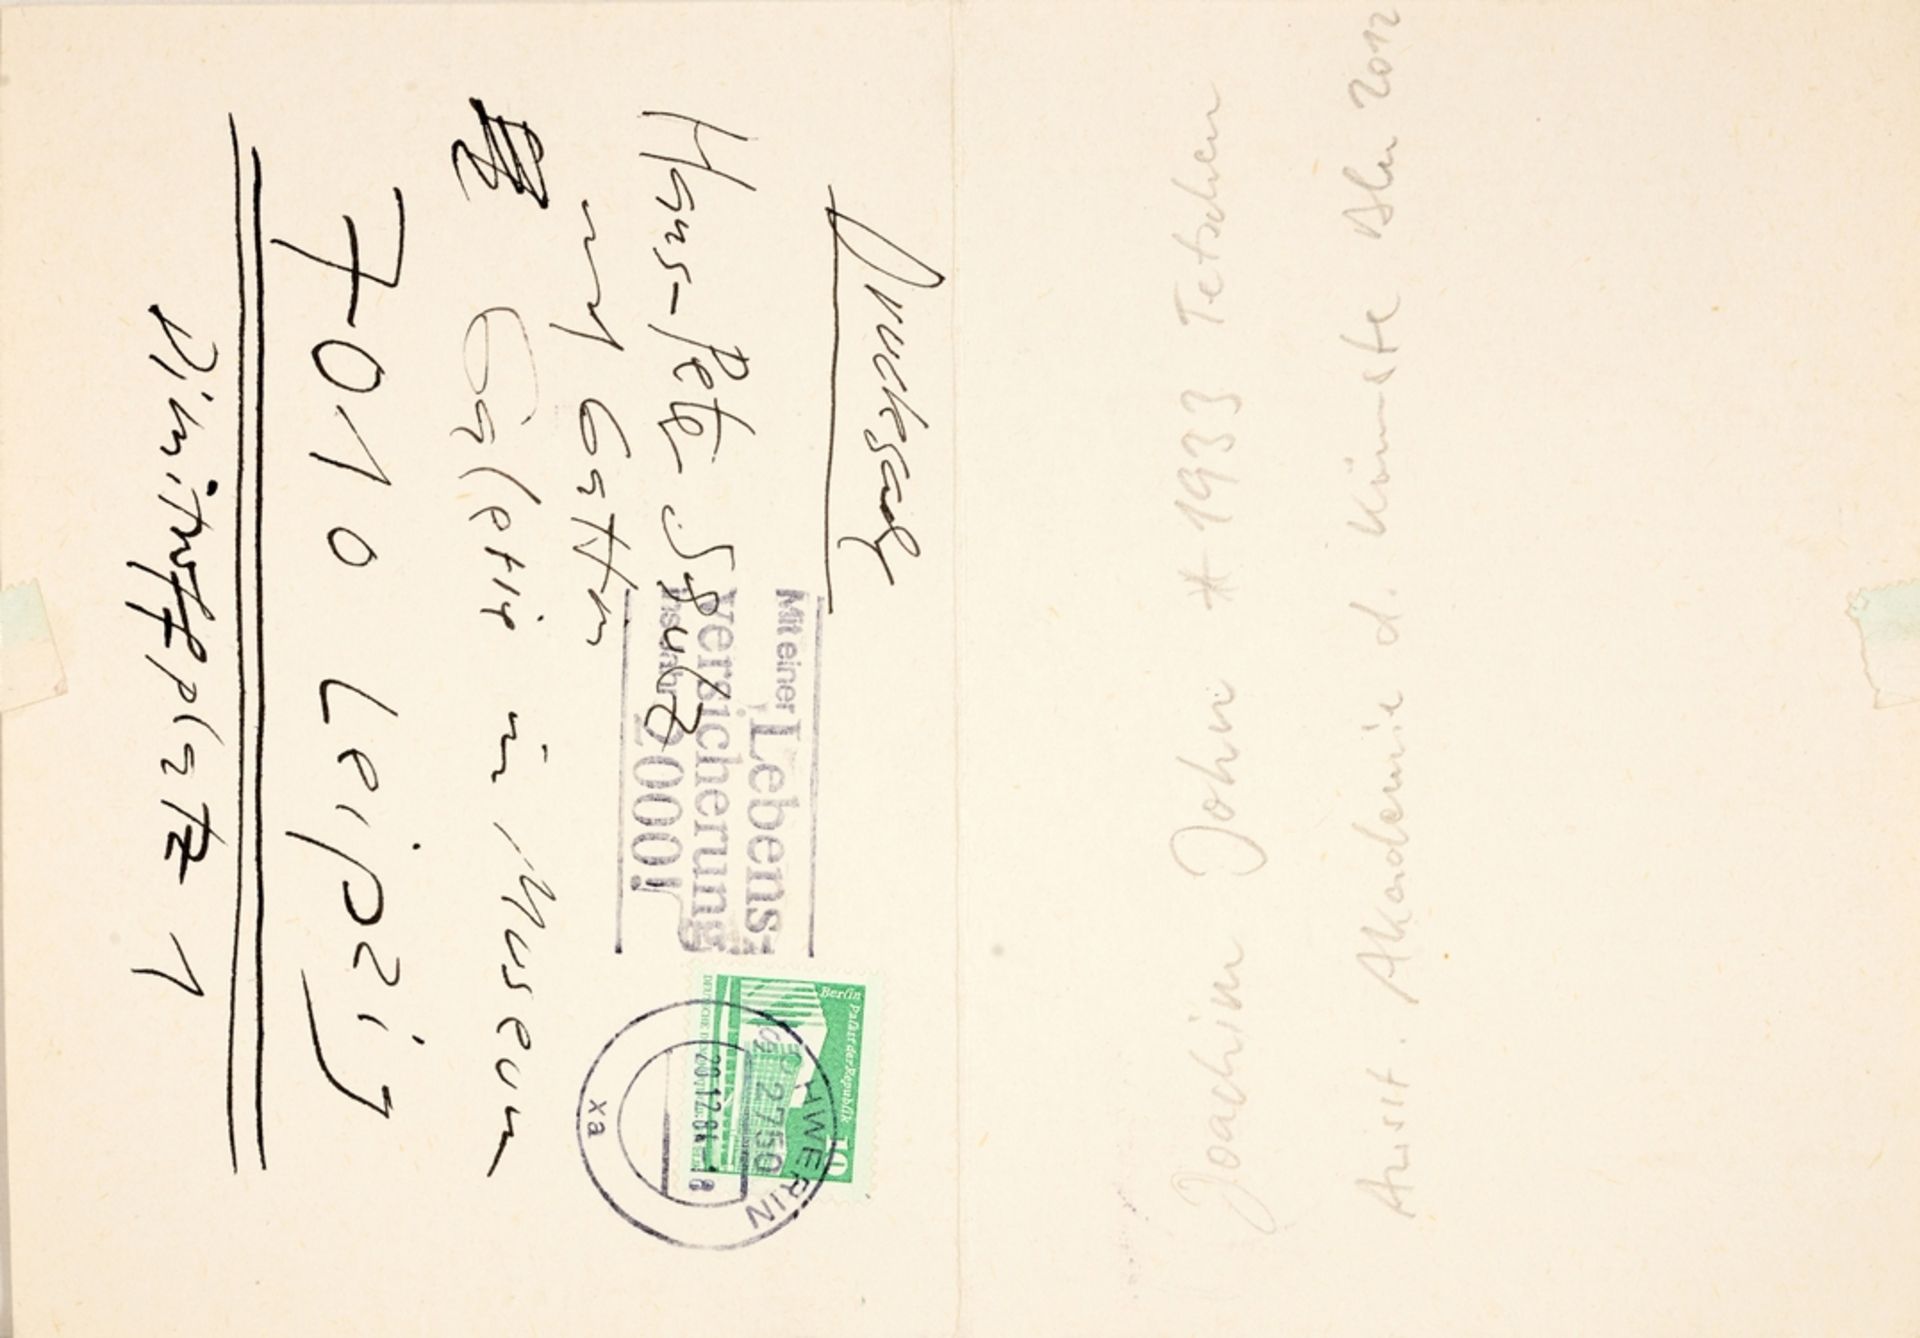 Drucksache
Hans-Peter Schulz
und Gattin
Galerie im Museum
7010 Leipzig
Dimitroffplatz 1
Mit einer
Lebens-
versicherung
ins Jahr
2000!
Berlin Palast der Republik
10
SCHWERIN
2750
28.12.84-18
xa
Joachim John * 1933 Tetschen
Ausst. Akademie d. Künste Bln 2012